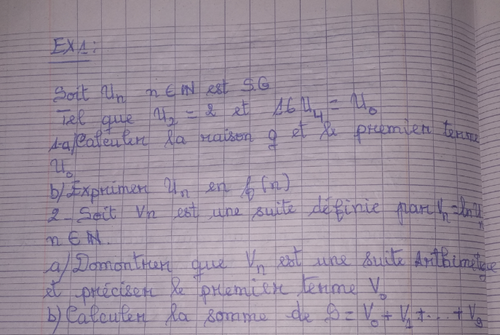 EX1:
Soit Un n ∈ IN est SG
Tel que U2 = 2 et 16U4 = U0
1-a) Calculer la raison q et le premier terme
U0
b) Exprimer Un en f(n)
2- Soit Vn est une suite définie par Vn = ln Un
n ∈ IN.
a) Domontrer que Vn est une suite Arithmétique
et préciser le premier terme V0
b) Calculer la somme de S = V0 + V1 + ... + V9